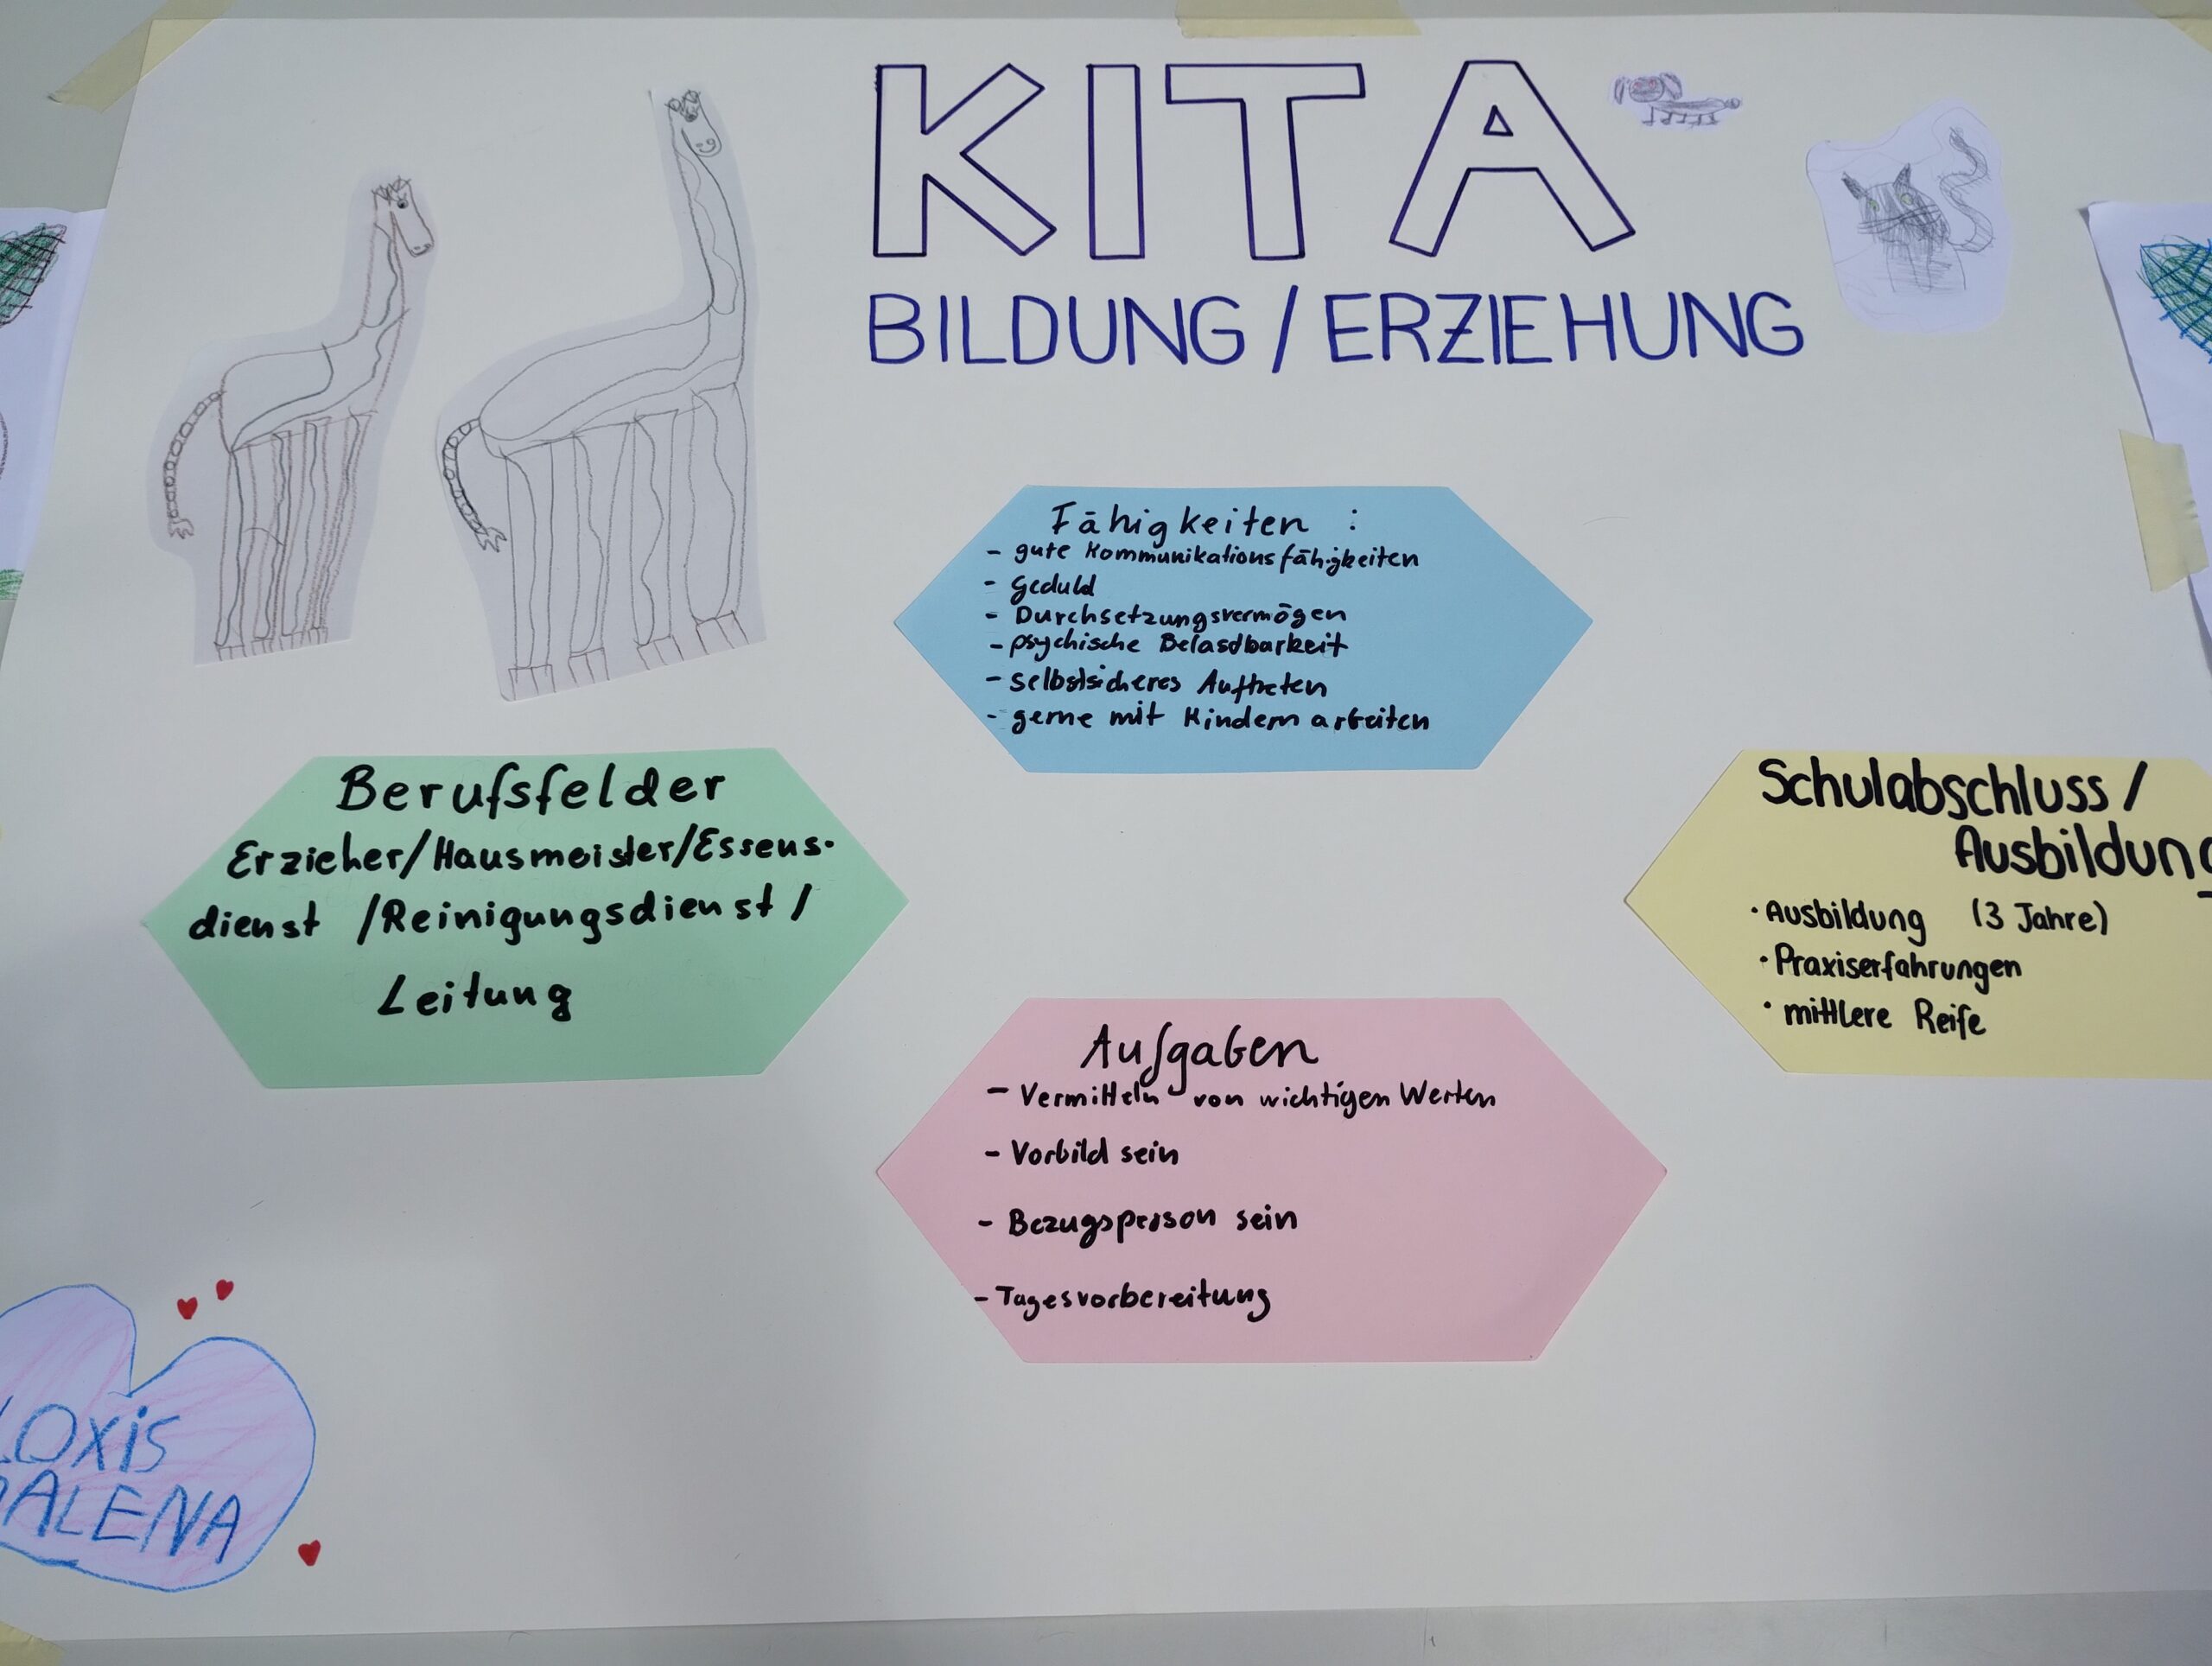 KITA
BILDUNG / ERZIEHUNG
Fähigkeiten :
- gute Kommunikationsfähigkeiten
- Geduld
- Durchsetzungsvermögen
- psychische Belasdbarkeit
- selbstsicheres Auftreten
- gerne mit Kindern arbeiten
Berufsfelder
Erzieher/Hausmeister/Essens-
dienst /Reinigungsdienst /
Leitung
Schulabschluss /
Ausbildung
· Ausbildung (3 Jahre)
· Praxiserfahrungen
· mittlere Reife
Aufgaben
- Vermitteln von wichtigen Werten
- Vorbild sein
- Bezugsperson sein
- Tagesvorbereitung
OXIS
ALENA